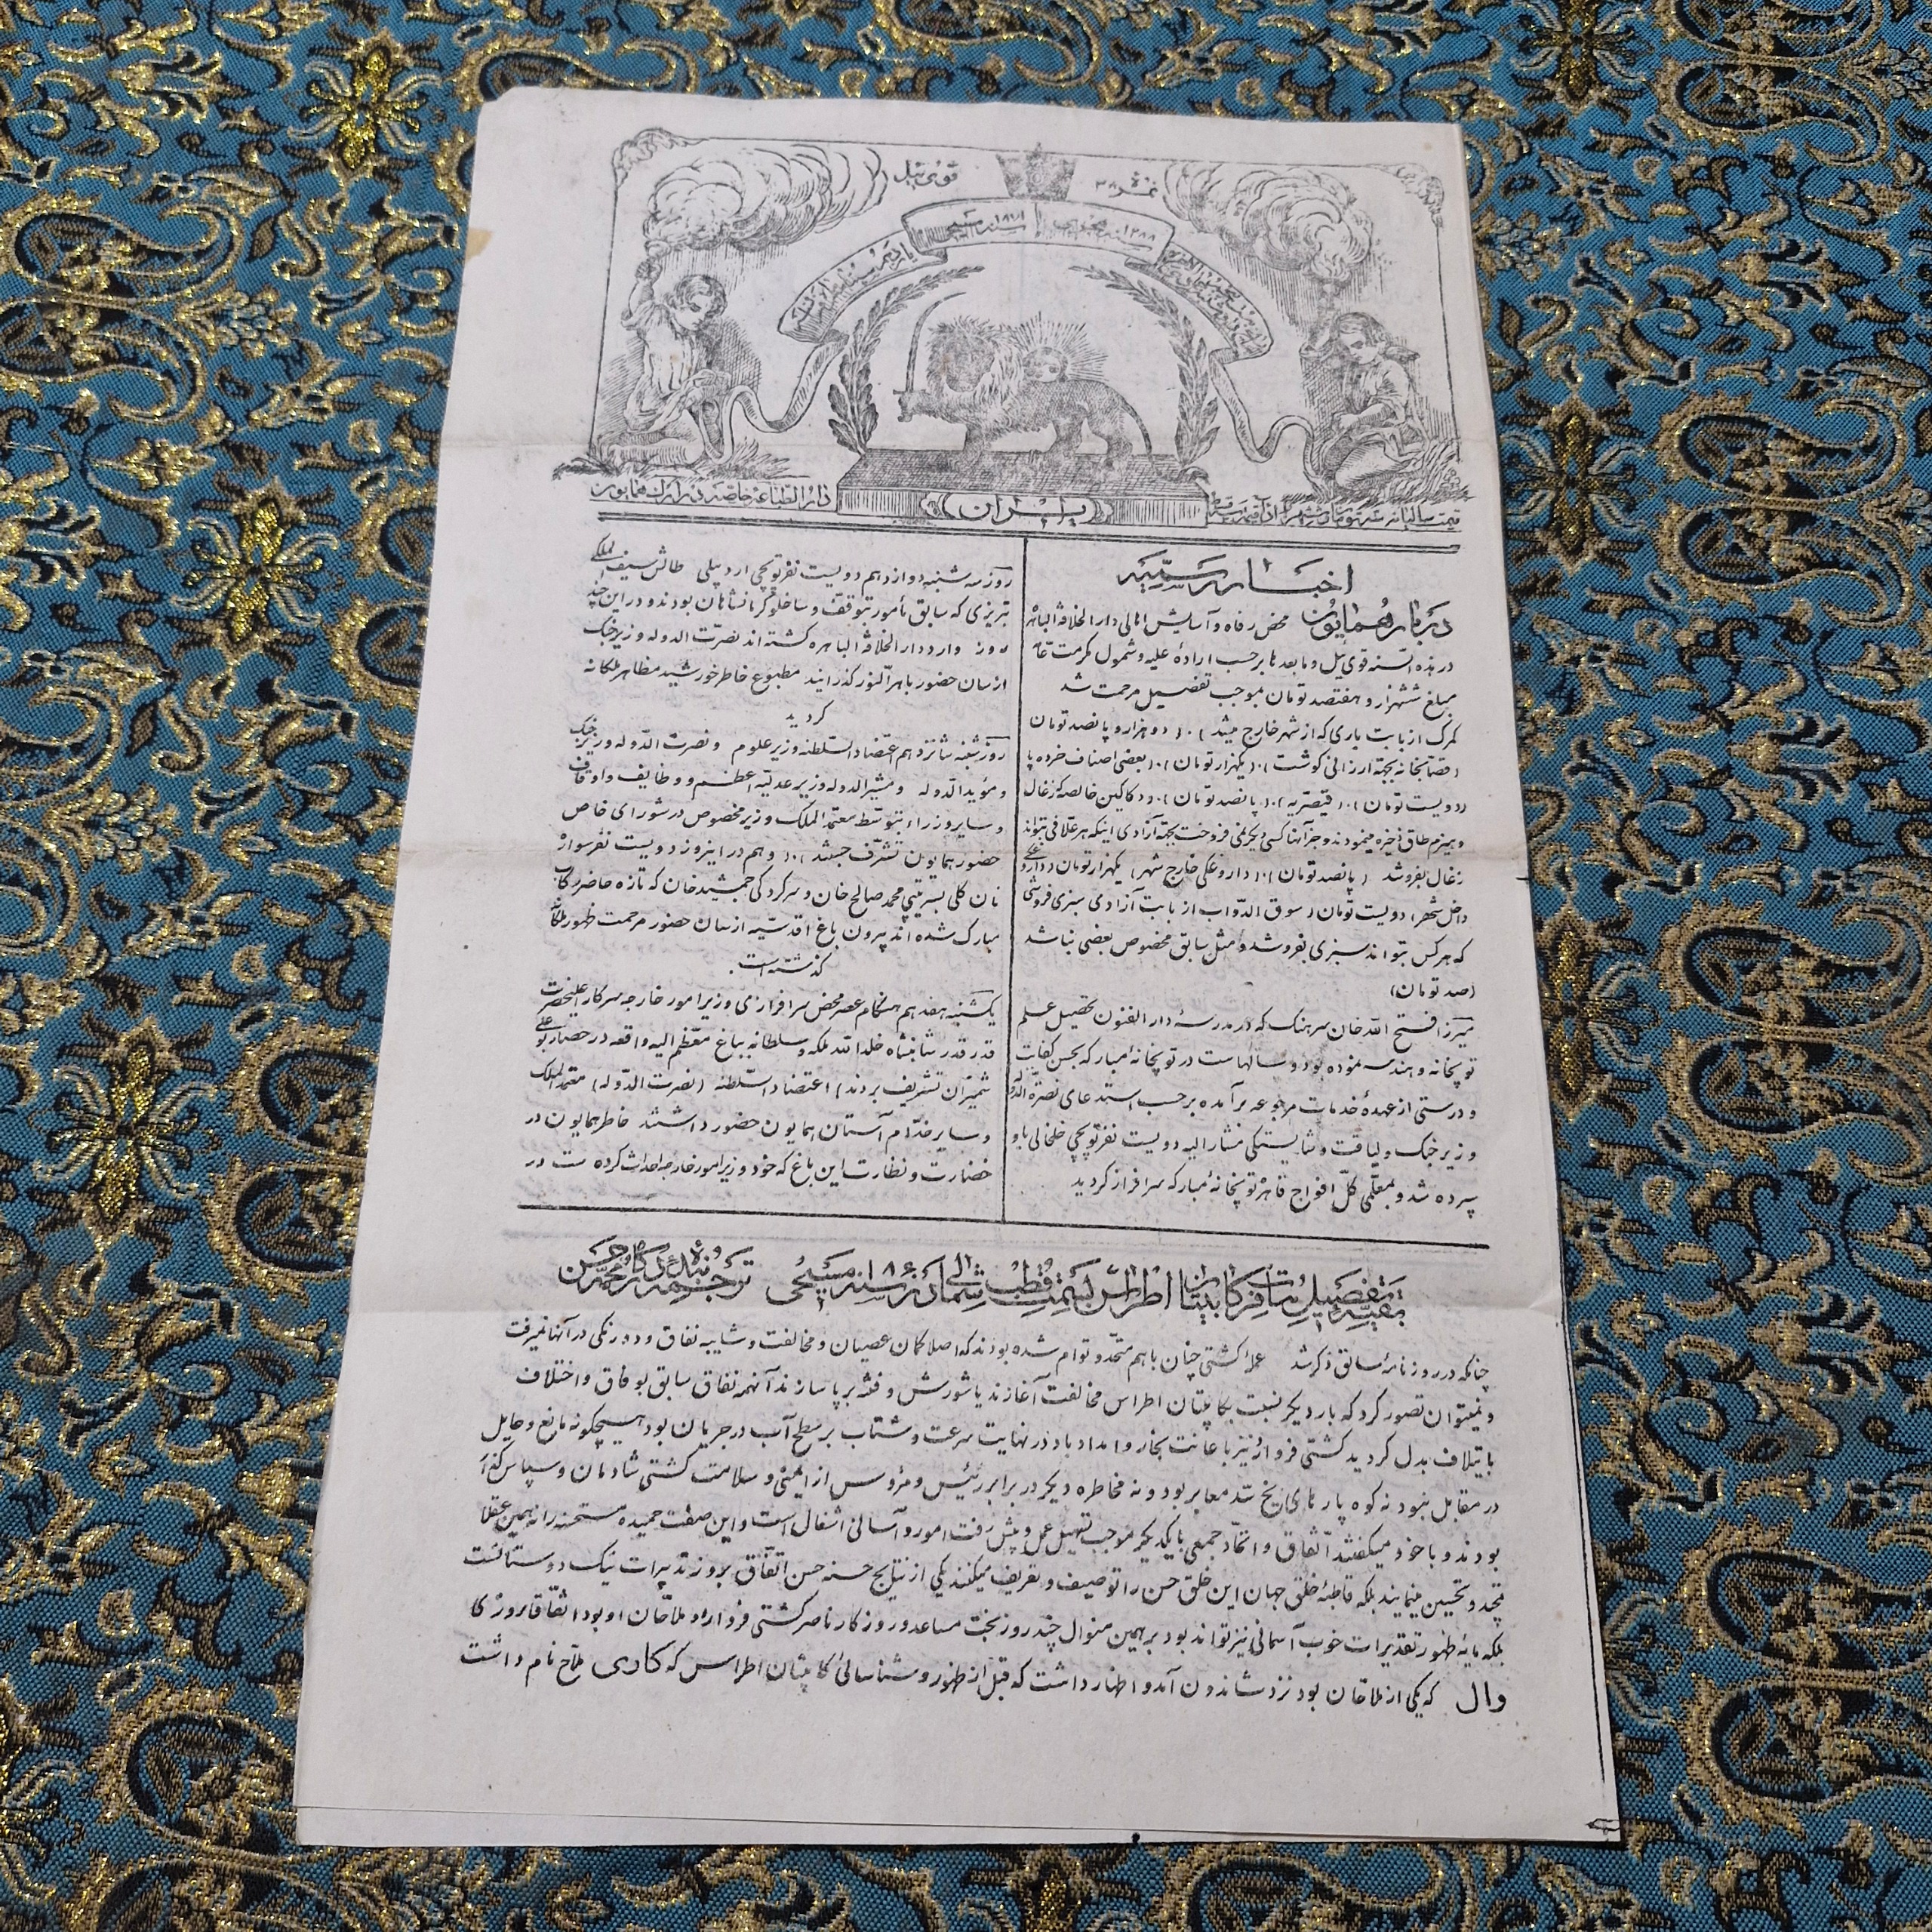 نمره ۳۸
قوی ئیل
۱۲۸۸
۱۸۷۱
ایران
دار الطباعه خاصه
اخبار رسمیه
دربار همایون محض رفاه و آسایش اهالی دار الخلافه الباهره
در هذه السنه قوی ئیل و ما بعدها بر حسب اراده علیه و شمول مکرمت
مبلغ ششهزار و هفتصد تومان بموجب تفصیل مرحمت شد
کمرک از بابت باری که از شهر خارج میشد ( دو هزار و پانصد تومان
( قصابخانه بجهته ارزانی کوشت ) ( یکهزار تومان ) ( بعضی اصناف خرده پا
( دویست تومان ) ( قیصریه ) ( پانصد تومان ) دکاکین خالصه که زغال
و هیزم طاق ذخیره مینمودند و جز آنها کسی دیکر نمی فروخت بجهته آزادی اینکه هر علافی بتواند
زغال بفروشد ( پانصد تومان ) ( داروغکی خارج شهر ) یکهزار تومان
داخل شهر ) دویست تومان ( سوق الدواب از بابت آزادی سبزی فروشی
که هر کس بتواند سبزی بفروشد و مثل سابق مخصوص بعضی نباشد
(صد تومان)
میرزا فتح الله خان سرهنک که در مدرسه دار الفنون تحصیل علم
توپخانه و هندسه نموده بود و سالهاست در توپخانه مبارکه بحسن کفایت
و درستی از عهده خدمات مرجوعه برآمده بر حسب استدعای نصرة الدوله
وزیر جنک و لیاقت و شایستکی مشار الیه دویست نفر توپچی خلخالی باو
سپرده شد و بمعلمی کل افواج قاهره توپخانه مبارکه سرافراز کردید
روز سه شنبه دوازدهم دویست نفر توپچی اردبیلی طالش سیف الملکی
تبریزی که سابق مأمور بتوقف و ساخلو کرمانشاهان بودند و در این چند
روزه وارد دار الخلافه الباهره کشته اند نصرت الدوله وزیر جنک
از سان حضور باهر النور کذرانید مطبوع خاطر خورشید مظاهر ملکانه
کردید
روز شنبه شانزدهم اعتضاد السلطنه وزیر علوم و نصرت الدوله وزیر جنک
و مؤید الدوله و مشیر الدوله وزیر عدلیه اعظم و وظایف و اوقاف
و سایر وزراء بتوسط معتمد الملک وزیر مخصوص در شورای خاص
حضور همایون تشرف جستند ) ( و هم در اینروز دویست نفر سواره
نان کلی بسرتیپی محمد صالح خان و سرکردکی جمشید خان که تازه حاضر رکاب
مبارک شده اند بیرون باغ اقدسیه از سان حضور مرحمت ظهور ملکانه
کذشته است.
یکشنبه هفدهم هنکام عصر محض سرافرازی وزیر امور خارجه سرکار اعلیحضرت
قدر قدرت شاهنشاه خلد الله ملکه و سلطانه بباغ معظم الیه واقعه در حصار بوعلی
شمیران تشریف بردند ) اعتضاد السلطنه ( نصرت الدوله ) معتمد الملک
و سایر خدام آستان همایون حضور داشتند خاطر همایون در
خضارت و نظارت این باغ که خود وزیر امور خارجه احداث کرده است در
بقیه تفصیل مسافرت کاپیتان اطراس بسمت قطب شمالی در سنه ۱۸۶۰ مسیحی ترجمه
چنانکه در روزنامه سابق ذکر شد عمله کشتی چنان با هم متحد و توام شده بودند که اصلا کمان عصیان و مخالفت و شایبه نفاق و دورنکی در آنها نمیرفت
و نمیتوان تصور کرد که بار دیکر نسبت بکاپیتان اطراس مخالفت آغازند یا شورش و فتنه بر پا سازند آنهمه نفاق سابق بوفاق و اختلاف
بایتلاف بدل کردید کشتی فروارد نیز باعانت بخار و امداد باد در نهایت سرعت و شتاب بر سطح آب در جریان بود هیچکونه مانع و حایل
در مقابل نبود نه کوه پارهای یخ سد معابر بود و نه مخاطره دیکر در برابر رئیس و مرؤس از ایمنی و سلامت کشتی شادمان و سپاس کذار
بودند و با خود میکفتند اتفاق و اتحاد جمعی با یکدیکر موجب تسهیل عمل و پیش رفت امور و آسانی اشغال است و این صفت حمیده مستحسنه را نه همین عقلا
تمجید و تحسین مینمایند بلکه قاطبه خلق جهان این خلق حسن را توصیف و تعریف میکنند یکی از نتایج حسنه حسن اتفاق بروز تدبیرات نیک دوستانست
بلکه مایه ظهور تقدیرات خوب آسمانی نیز تواند بود بر همین منوال چند روز بخت مساعد و روزکار ناصر کشتی فروارد و ملاحان او بود اتفاقا روزی
وال که یکی از ملاحان بود نزد شاندون آمد و اظهار داشت که قبل از ظهور و شناسائی کاپیتان اطراس که کاری ملاح نام داشت